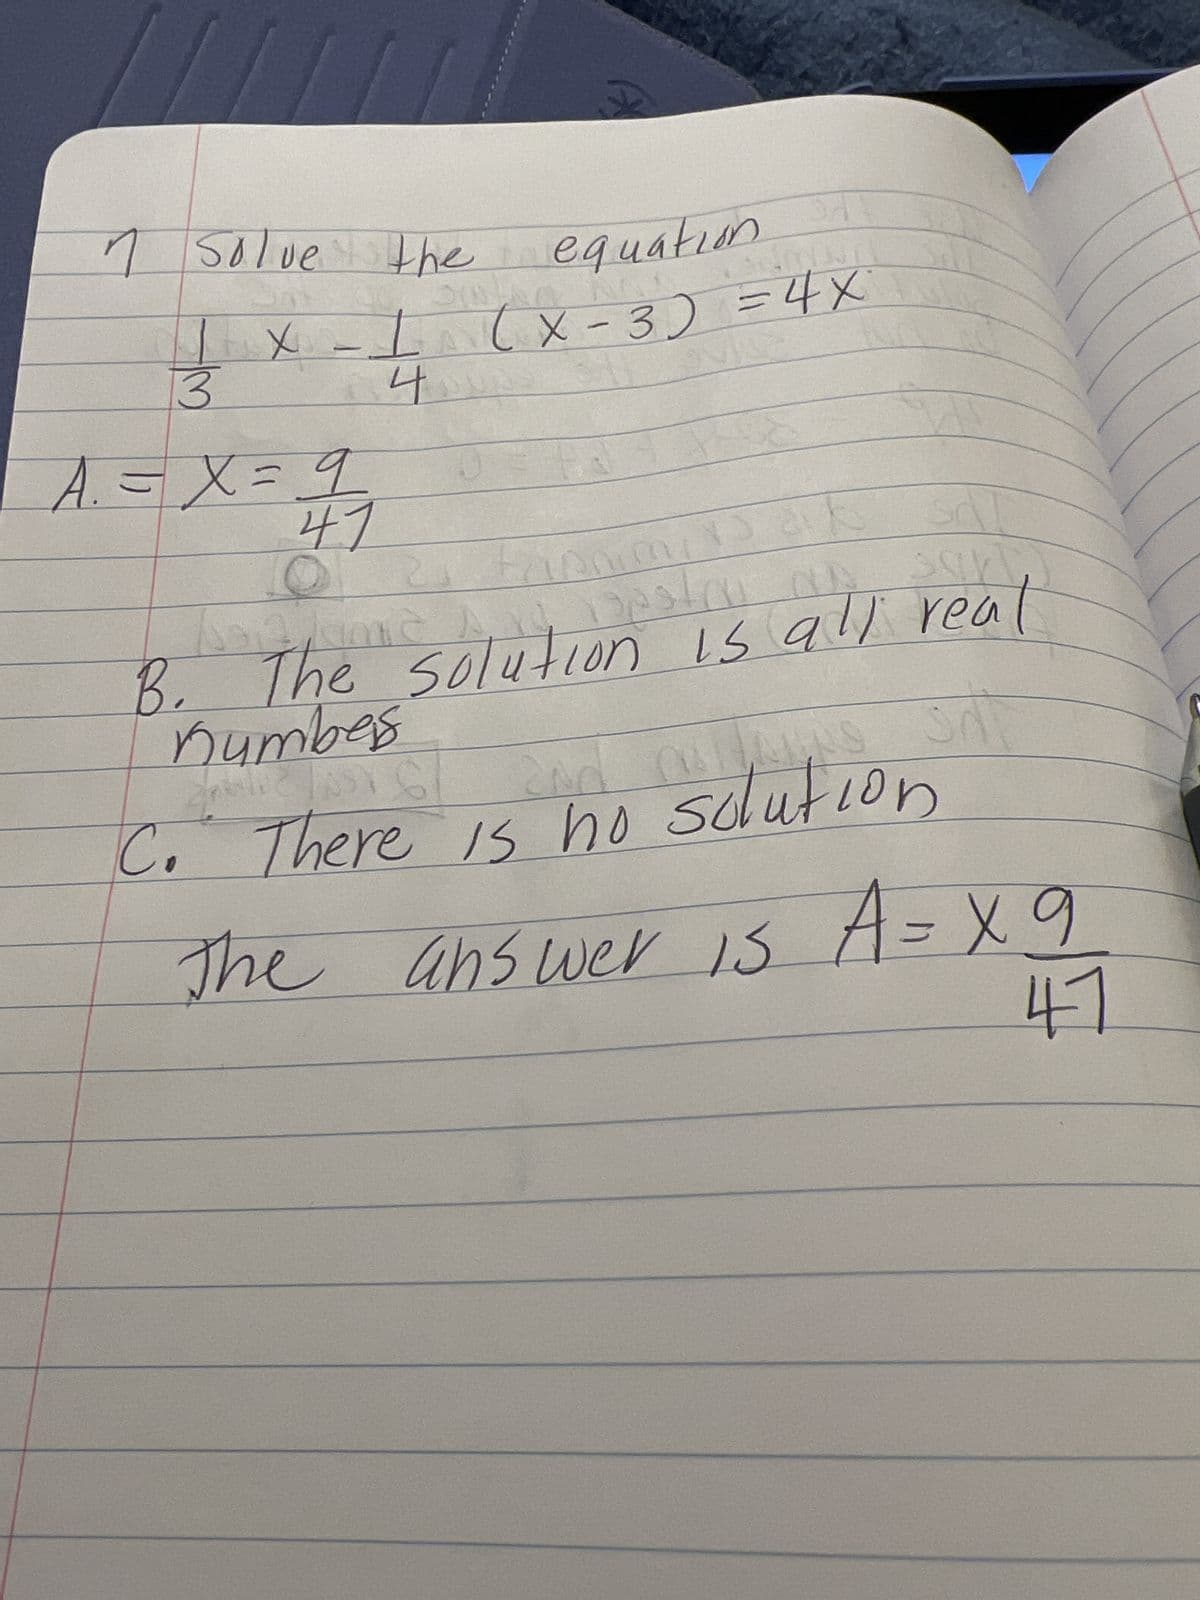 7 Solve the equation
1/3 x - 1/4 (x - 3) = 4x
A. = x = 9/47
B. The solution is all real
numbers
C. There is no solution
The answer is A = x 9/47